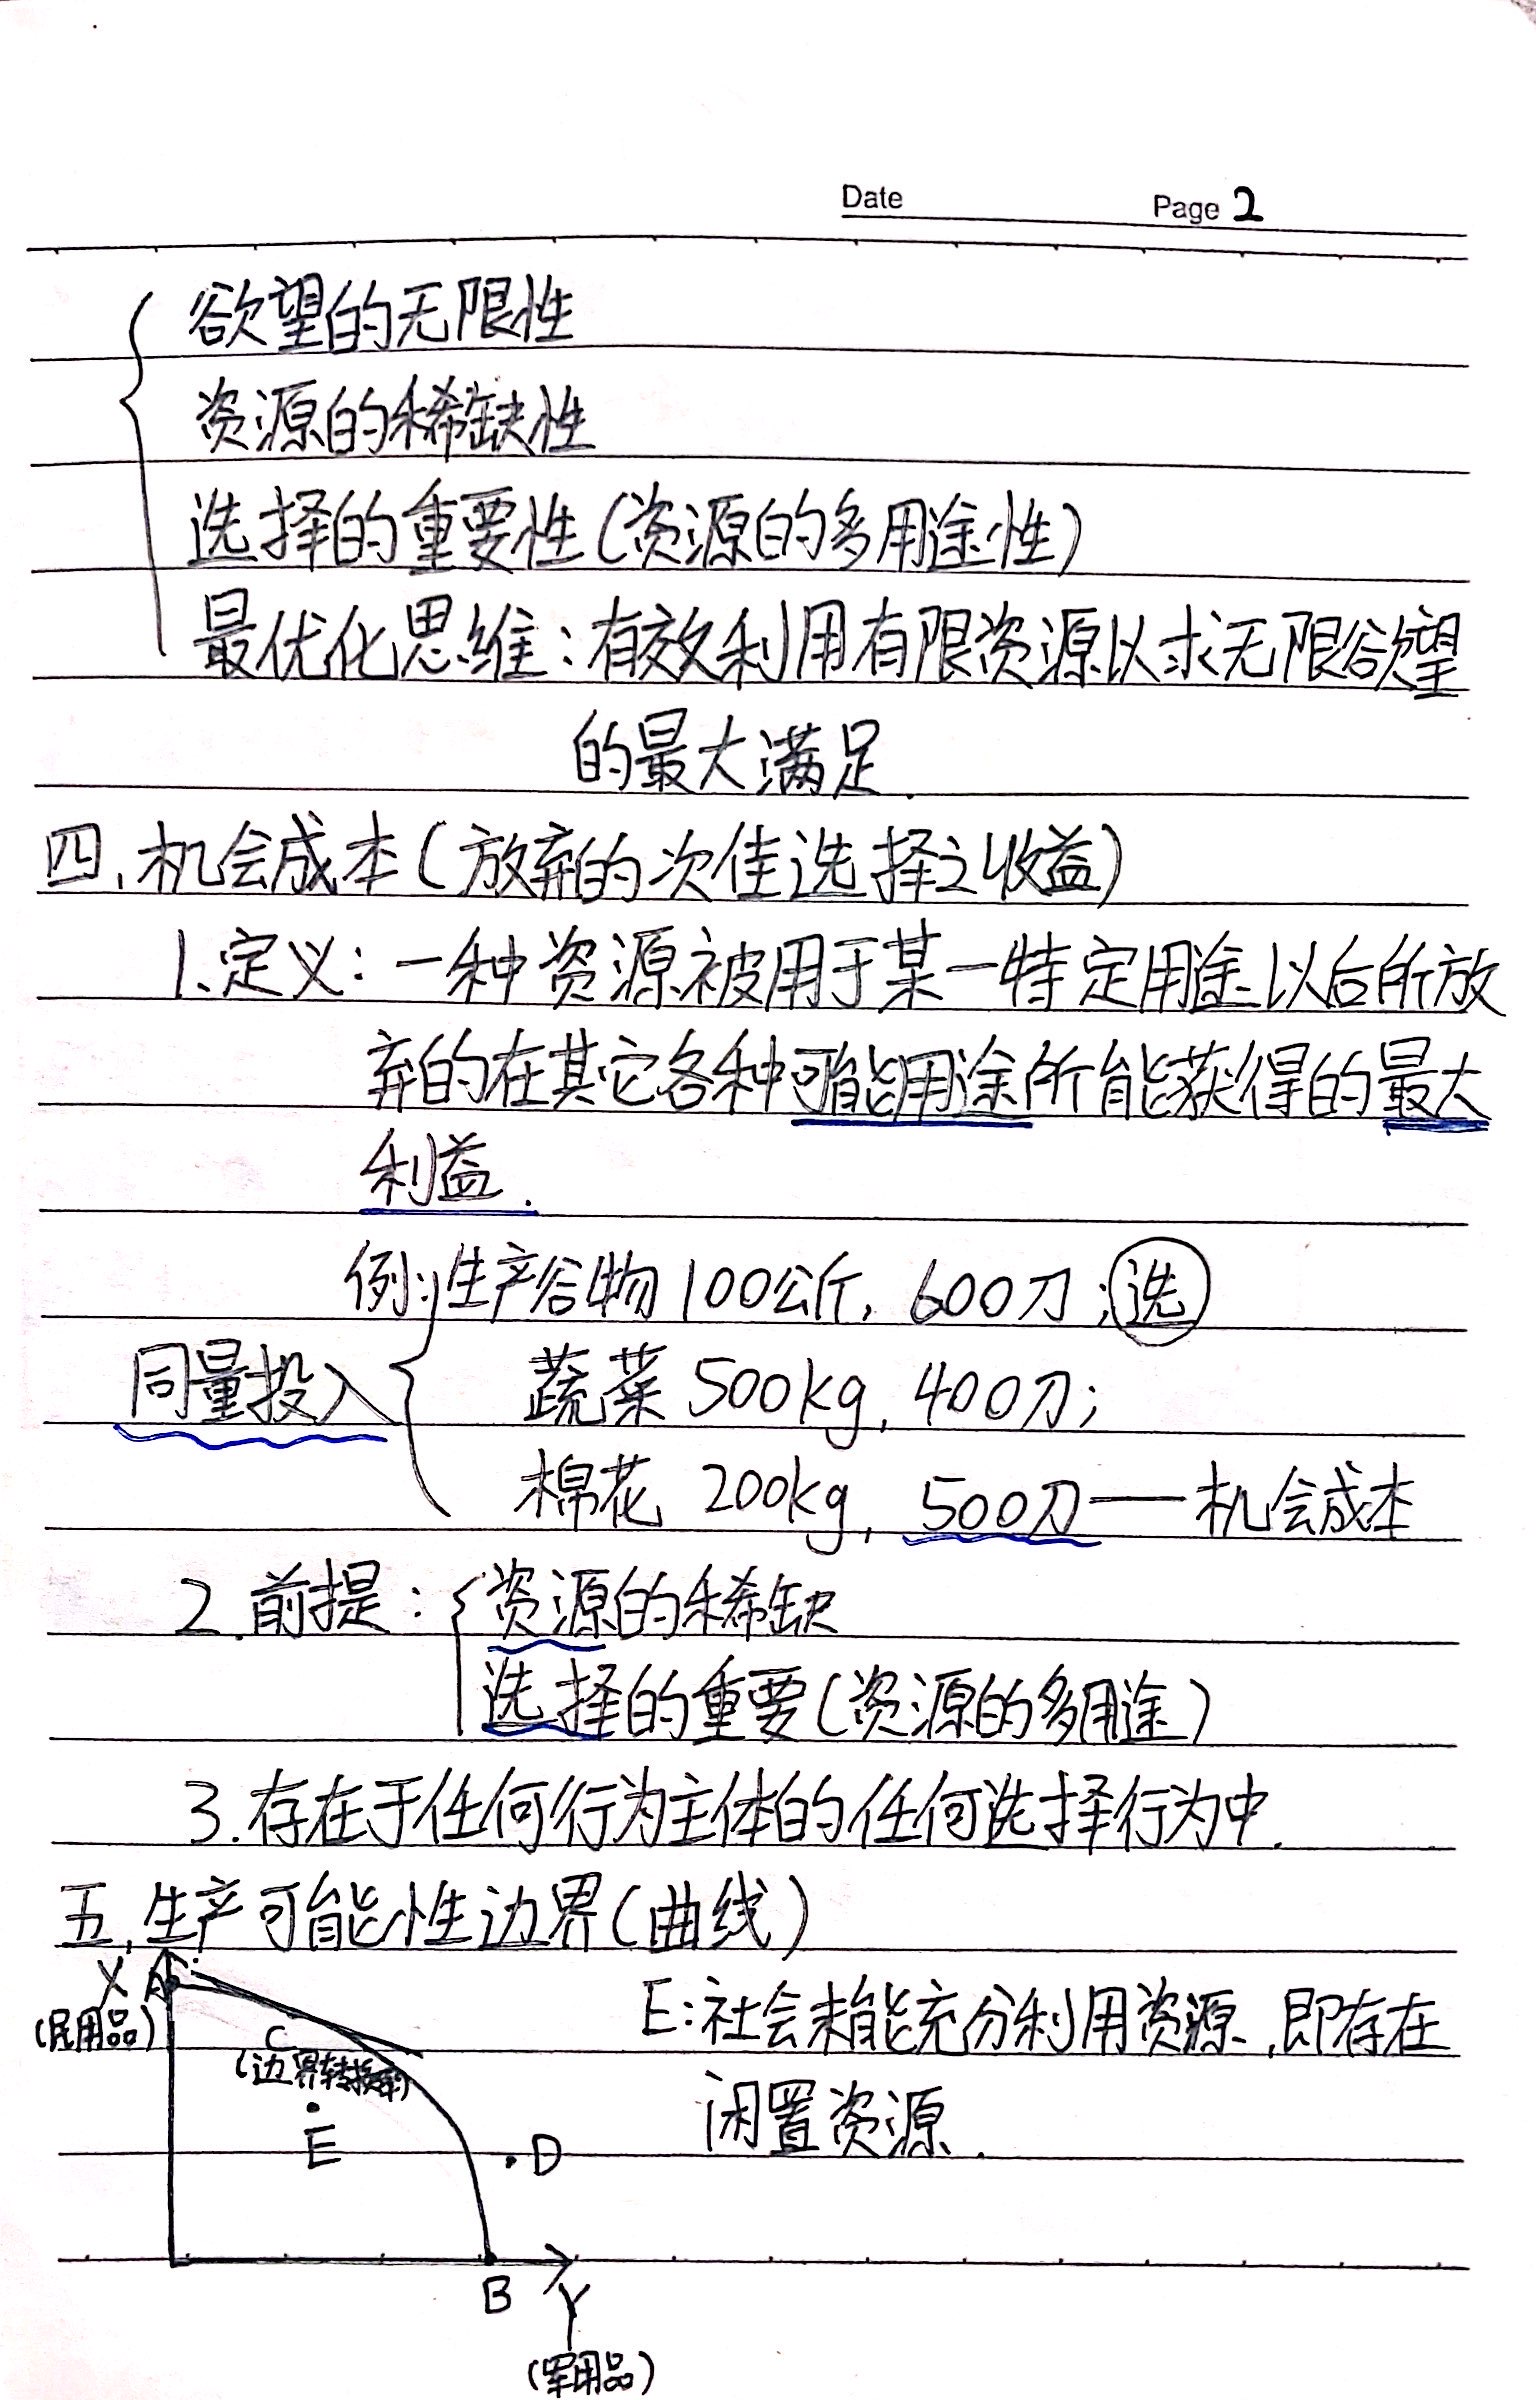 Date Page 2
欲望的无限性
资源的稀缺性
选择的重要性(资源的多用途性)
最优化思维:有效利用有限资源以求无限欲望
的最大满足.
四.机会成本(放弃的次佳选择之收益)
1.定义:一种资源被用于某一特定用途以后所放
弃的在其它各种可能用途所能获得的最大
利益.
例:生产谷物100公斤,600刀;选
同量投入
蔬菜500kg,400刀;
棉花 200kg,500刀——机会成本
2.前提:资源的稀缺
选择的重要(资源的多用途)
3.存在于任何行为主体的任何选择行为中.
五.生产可能性边界(曲线)
X A
(民用品)
E:社会未能充分利用资源,即存在
闲置资源.
C
(边界转换率)
E
D
B
Y
(军用品)